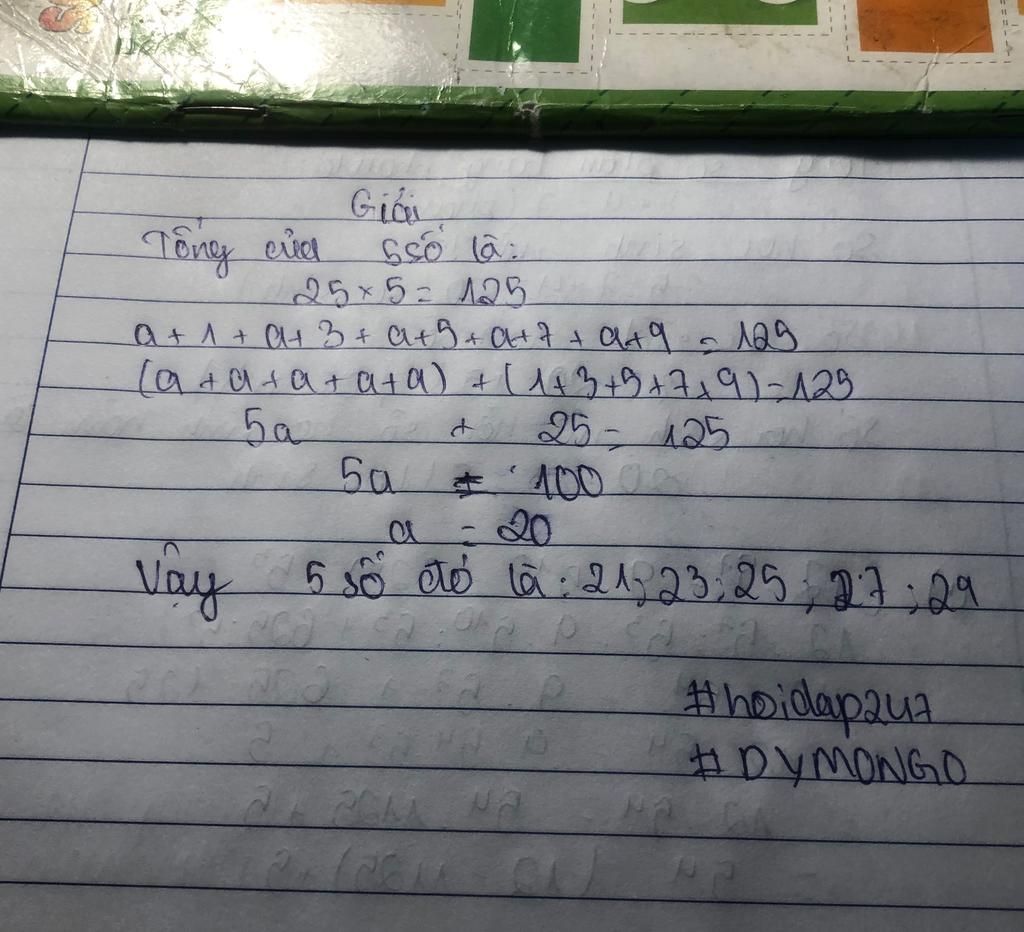 Giải
Tổng của 5 số là:
25 × 5 = 125
a + 1 + a + 3 + a + 5 + a + 7 + a + 9 = 125
(a + a + a + a + a) + (1 + 3 + 5 + 7 + 9) = 125
5a + 25 = 125
5a = 100
a = 20
Vậy 5 số đó là : 21; 23; 25; 27; 29
#hoidap247
#DYMONGO